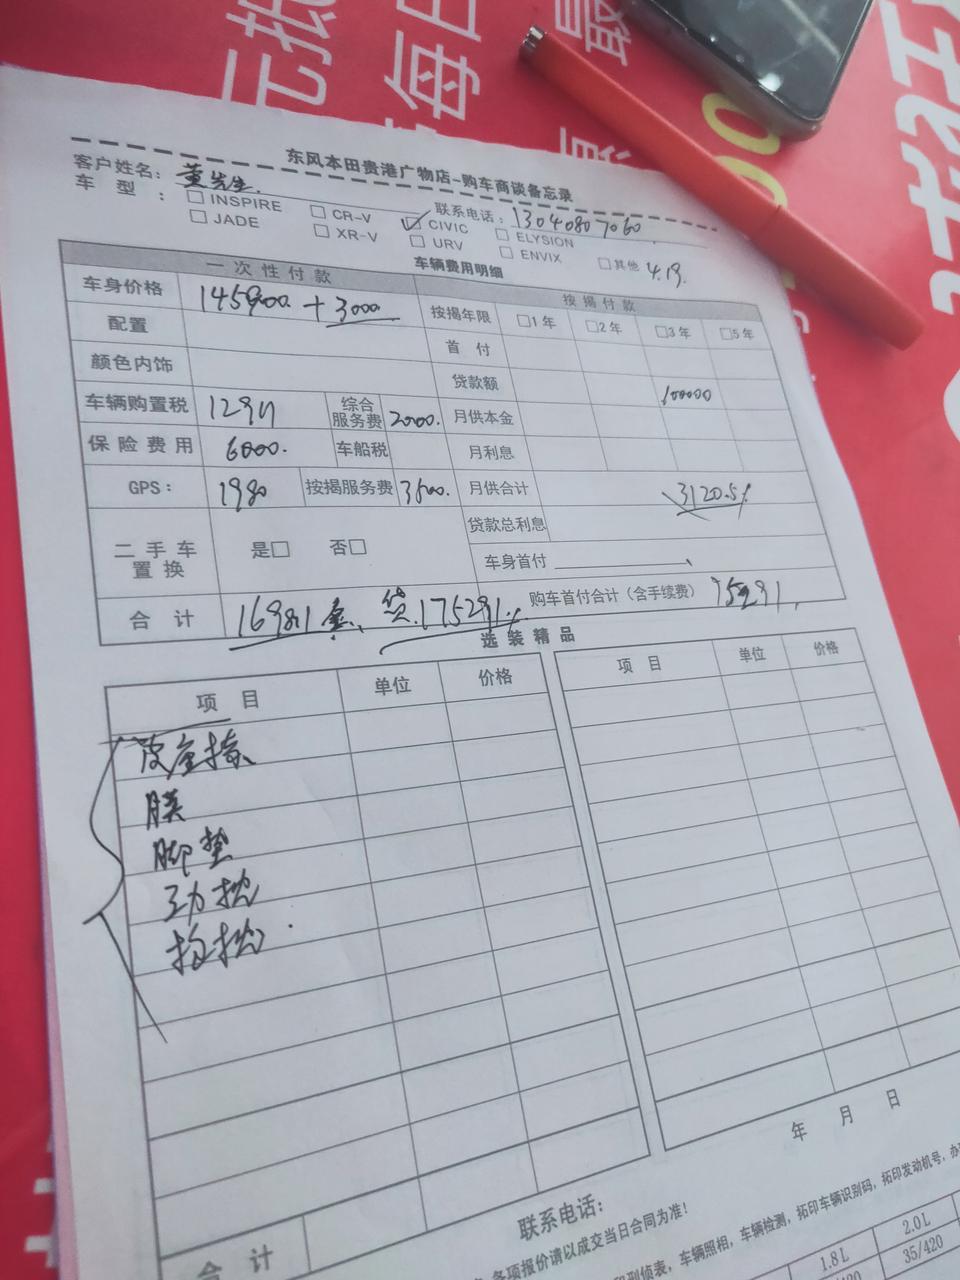 东风本田贵港广物店-购车商谈备忘录
客户姓名: 董先生 联系电话: 13040807060
车型: □INSPIRE □CR-V ☑CIVIC □ELYSION □其他 4.19.
□JADE □XR-V □URV □ENVIX
车辆费用明细
一次性付款 按揭付款
车身价格 145900 + 3000 按揭年限 □1年 □2年 □3年 □5年
配置 首付
颜色内饰 贷款额 100000
车辆购置税 12911 综合服务费 2000. 月供本金
保险费用 6000. 车船税 月利息
GPS: 1980 按揭服务费 3500. 月供合计 3120.51
二手车置换 是□ 否□ 贷款总利息
车身首付
合计 169811 全、贷.175291 购车首付合计(含手续费) 75291
选装精品
项目 单位 价格 项目 单位 价格
膜
脚垫
年 月 日
合计
联系电话:
各项报价请以成交当日合同为准!
车辆照相,车辆检测,拓印车辆识别码,拓印发动机号,
1.8L 2.0L
35/420